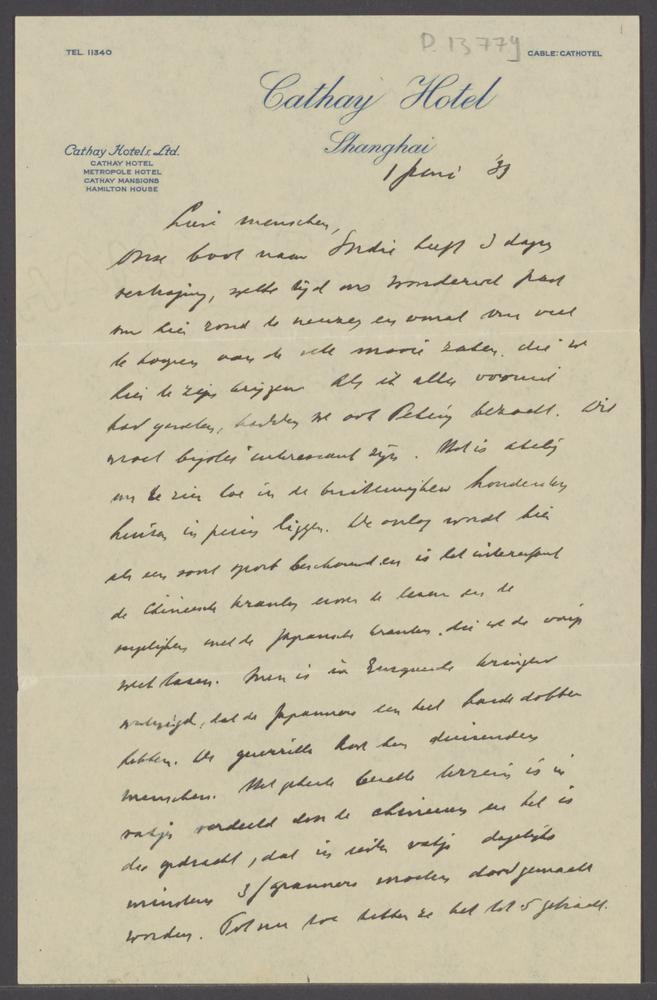 D. 13779
TEL. 11340
CABLE: CATHOTEL
Cathay Hotel
Shanghai
Cathay Hotels, Ltd.
CATHAY HOTEL
METROPOLE HOTEL
CATHAY MANSIONS
HAMILTON HOUSE
1 Juni '39
Lieve menschen,
Onze boot naar Indië heeft 3 dagen
vertraging, welke tijd ons wonderwel past
om hier rond te neuzen en vooral om veel
te van de vele mooie zaken, die er
hier te zijn krijgen. Als ik alles vooruit
had geweten, hadden we ook Peking bezocht. Dit
moet interessant zijn. Het is
om te zien hoe in de buitenwijken honderden
huizen in puin liggen. De oorlog wordt hier
als een soort sport beschouwd en is het interessant
de Chineesche kranten te lezen en te
vergelijken met de Japansche kranten, die we de vorige
week lazen. Men is in kringen
overtuigd, dat de Japanners een heel harde dobber
hebben. De guerrilla kost hen duizenden
menschen. Het geheele bezette terrein is in
vakjes verdeeld door de Chineezen en het is
de opdracht, dat in ieder vakje dagelijks
minstens 3 Japanners moeten doodgemaakt
worden. Tot nu toe hebben ze het tot 5 gebracht.